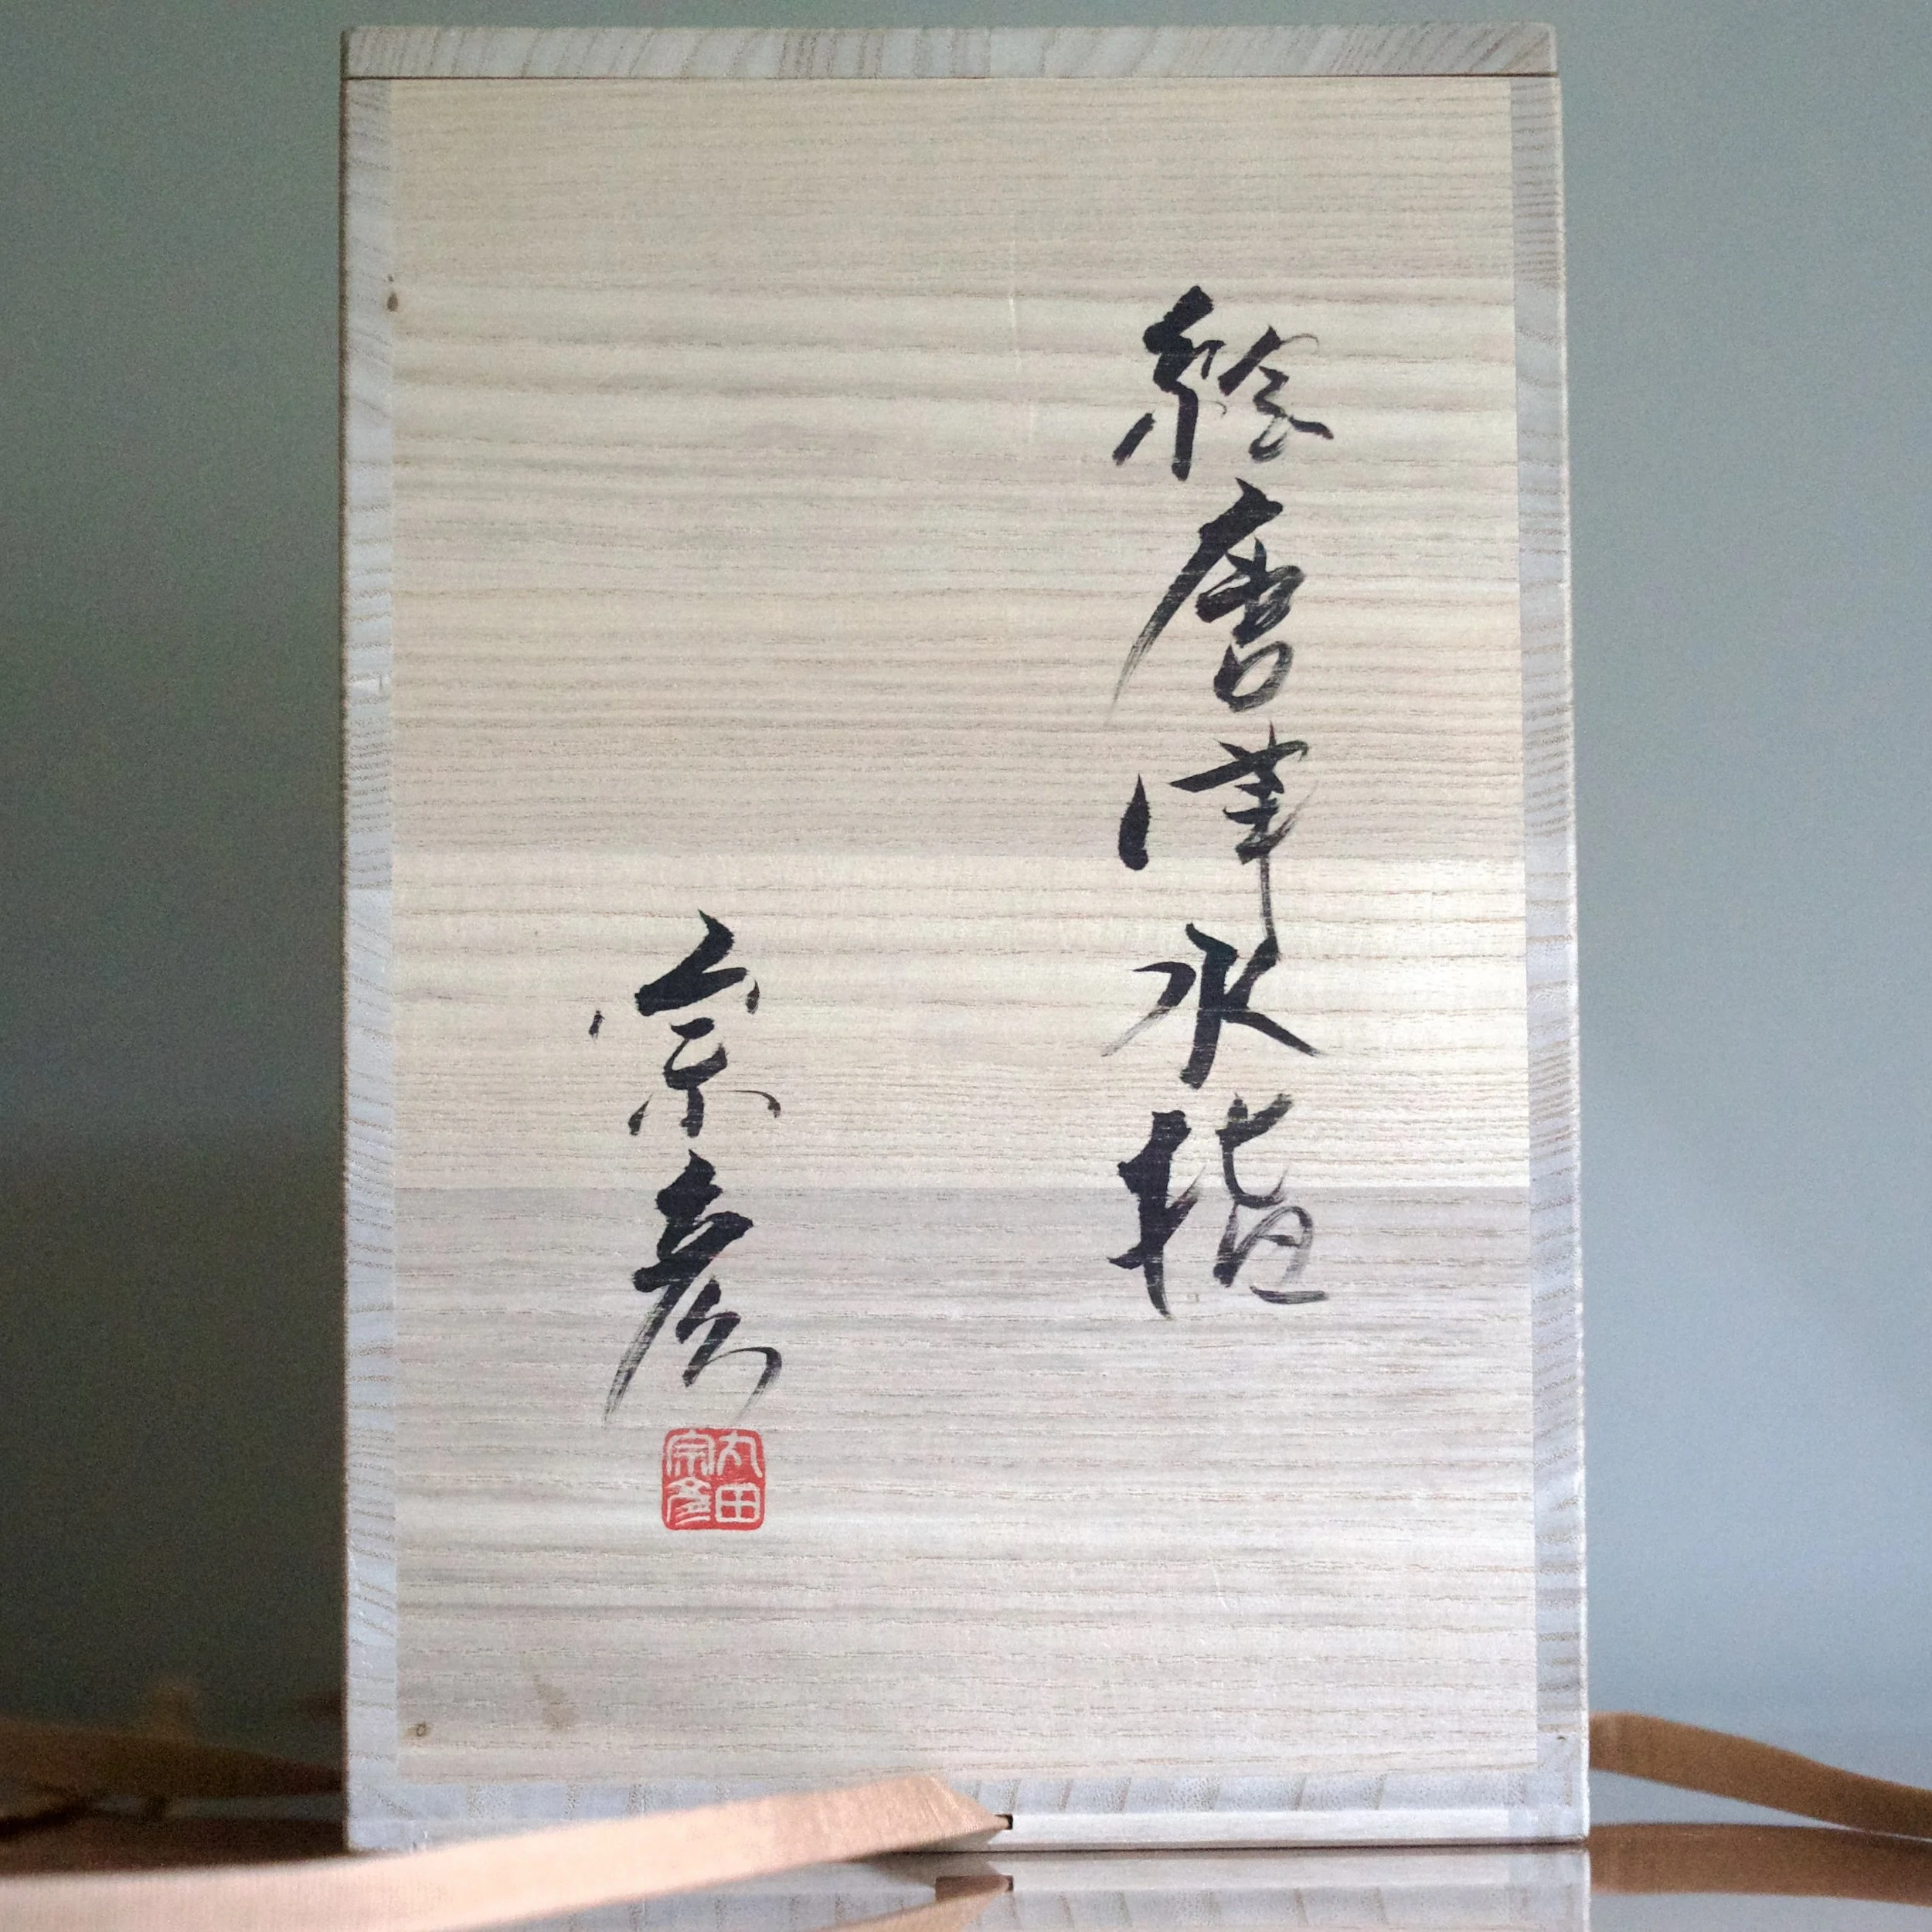 絵唐津水指
宗彦
丸田
宗彦